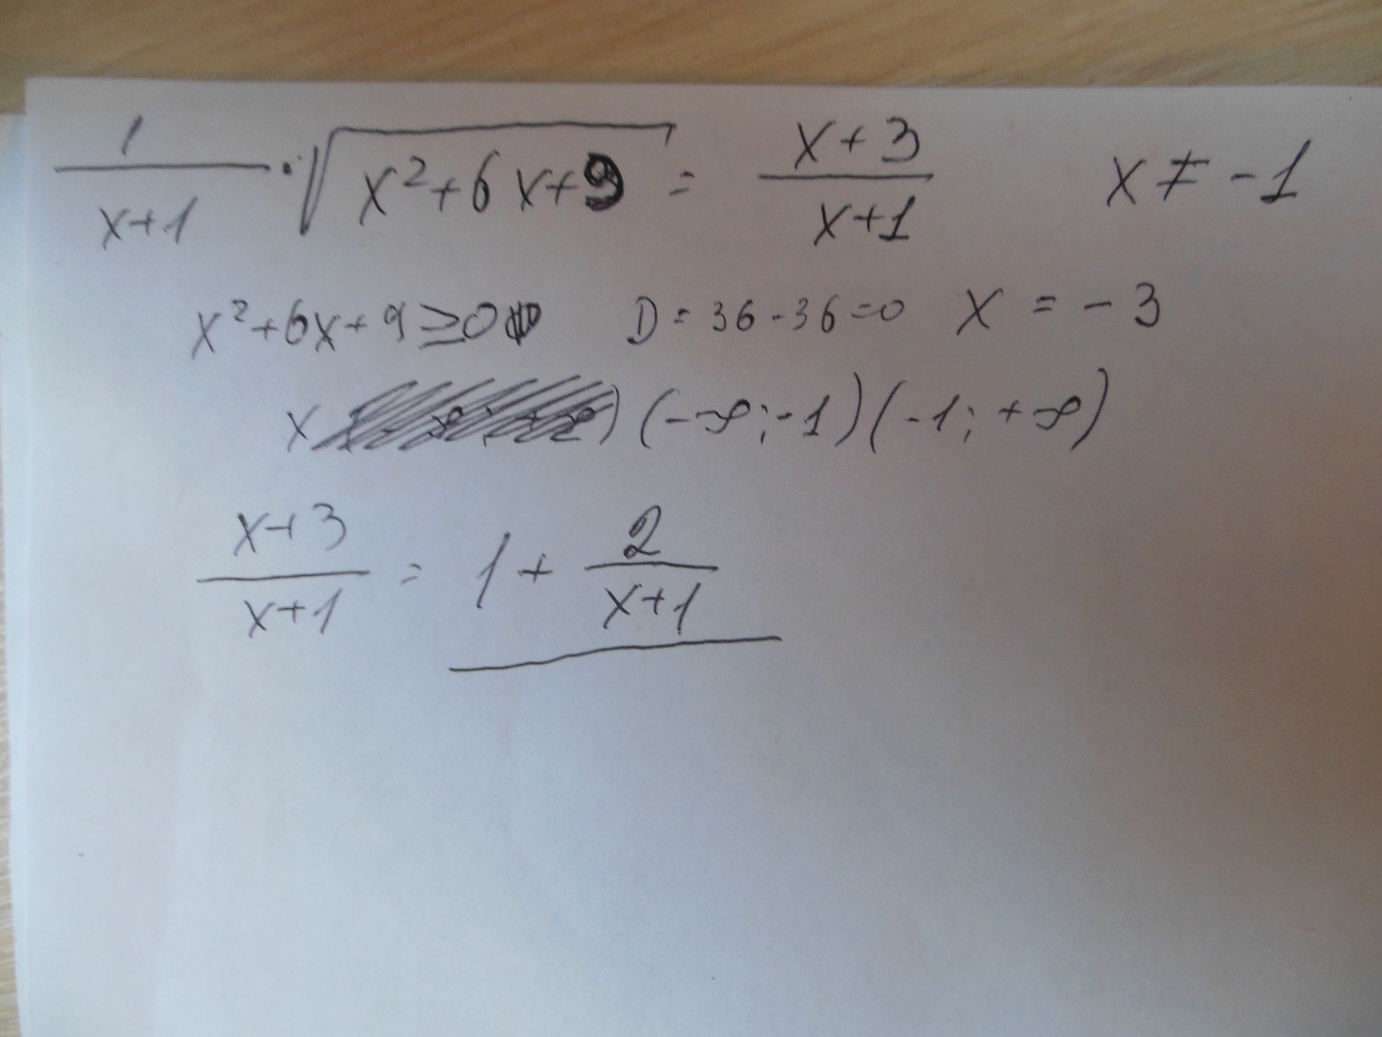 1/(x+1) · √(x²+6x+9) = (x+3)/(x+1) x ≠ -1
x²+6x+9 ≥ 0 D = 36-36=0 x = -3
x (-∞; -1) (-1; +∞)
(x+3)/(x+1) = 1 + 2/(x+1)